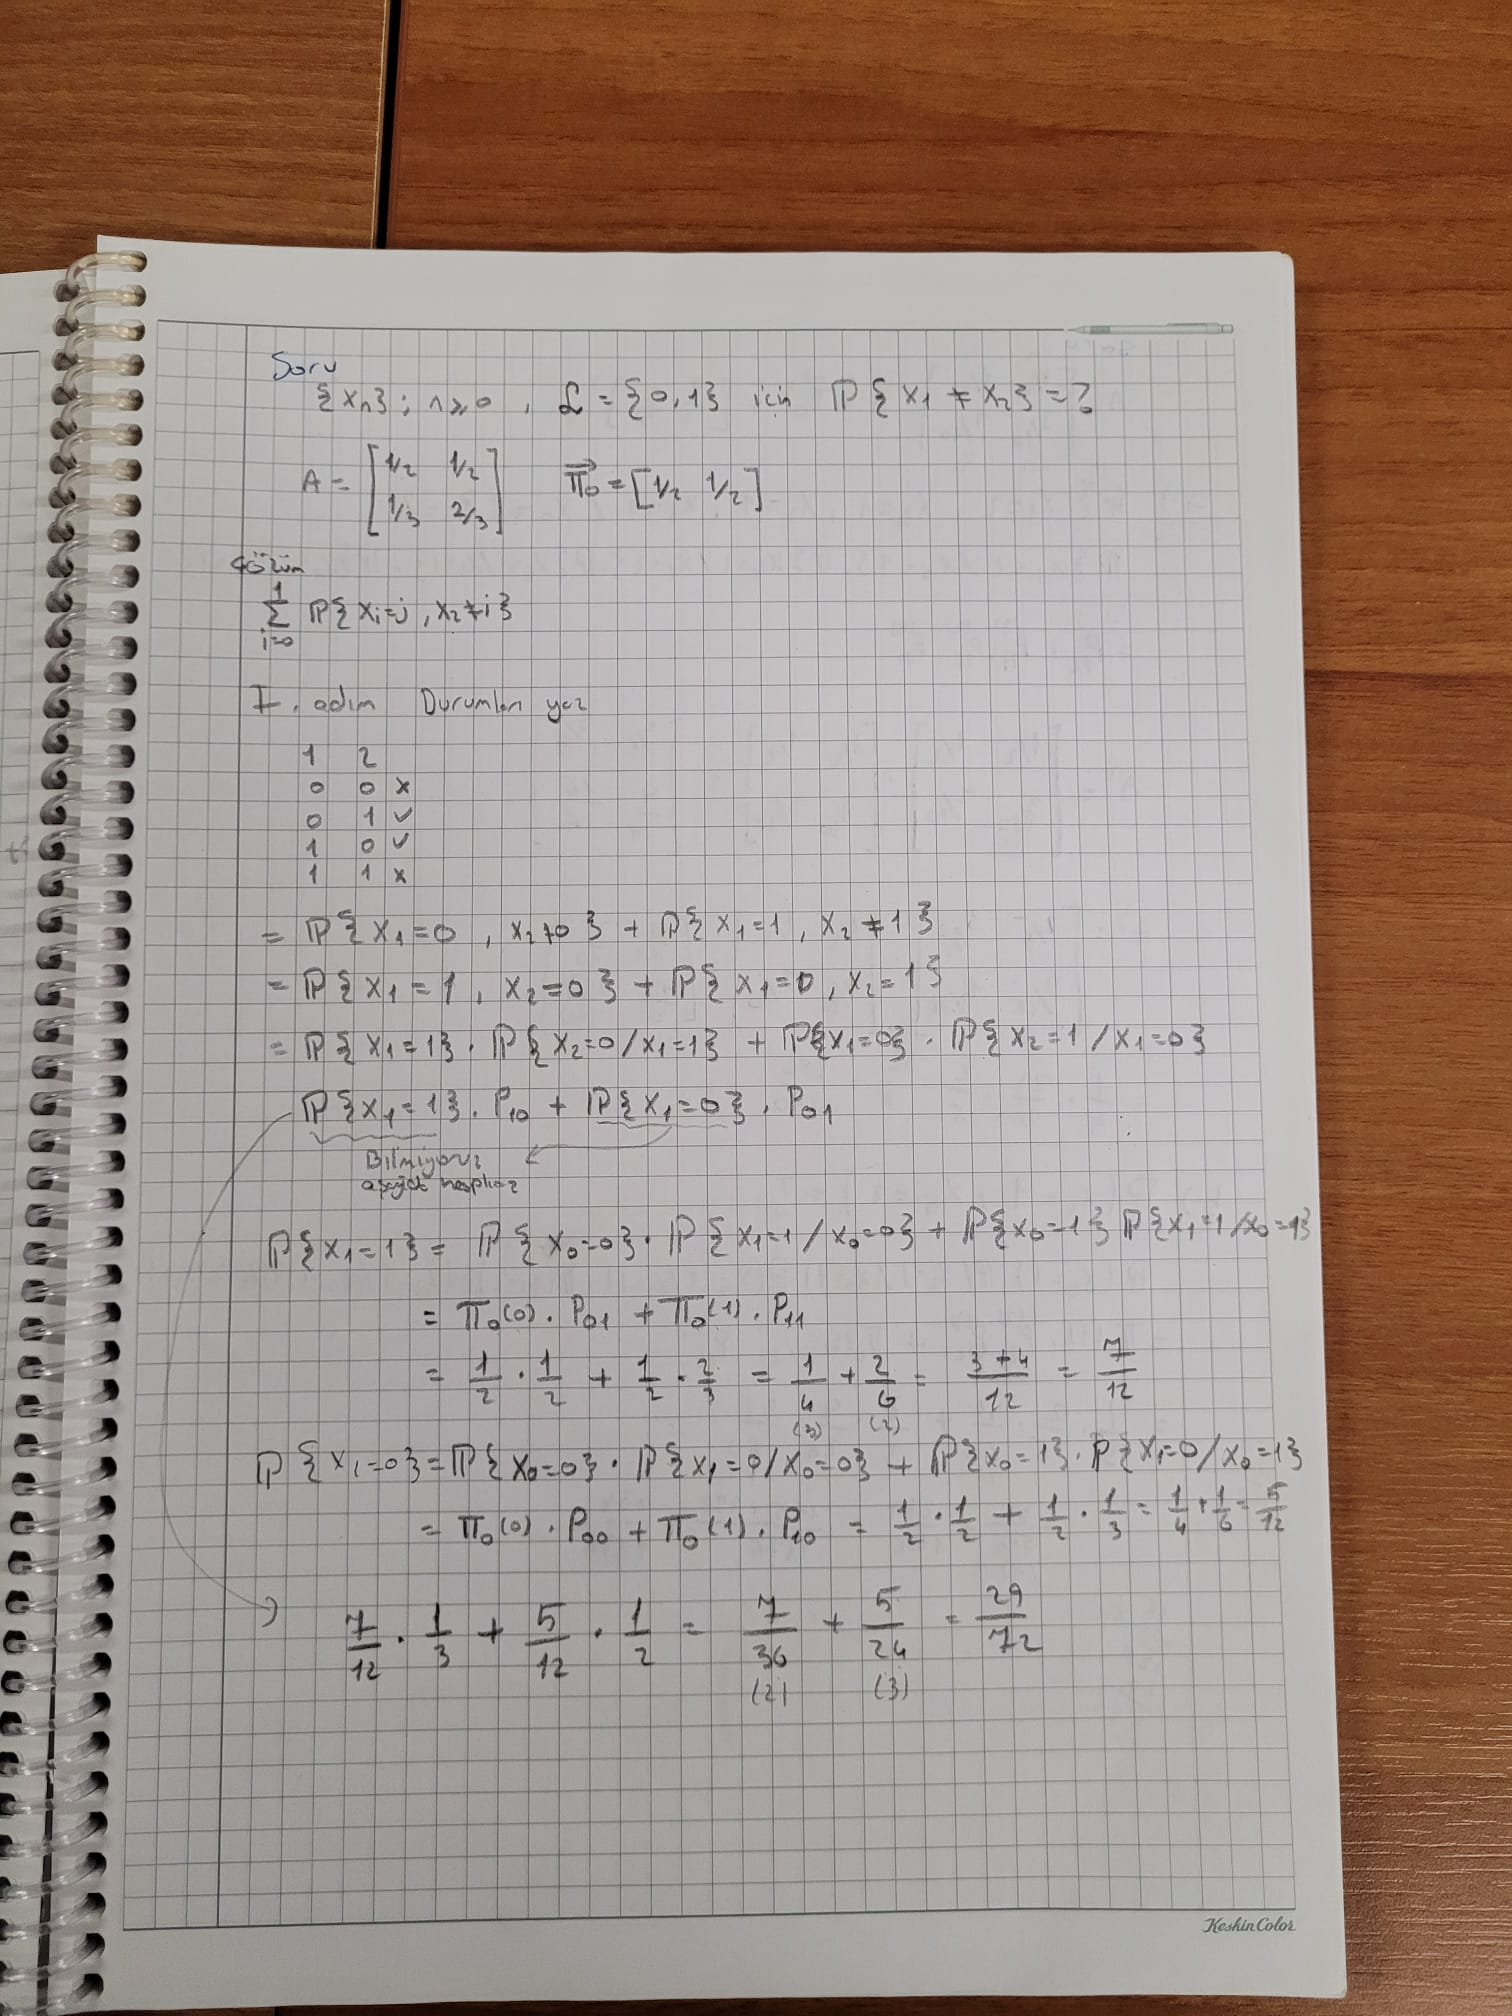 Soru
{Xn}; n≥0, L = {0,1} için P{X1 ≠ X2} = ?
A = [1/2 1/2
1/3 2/3] π0 = [1/2 1/2]
Çözüm
1
Σ P{Xi=j, X2≠i}
i=0
I. adım Durumları yaz
1 2
0 0 x
0 1 ✓
1 0 ✓
1 1 x
= P{X1=0, X2≠0} + P{X1=1, X2≠1}
= P{X1=1, X2=0} + P{X1=0, X2=1}
= P{X1=1} . P{X2=0/X1=1} + P{X1=0} . P{X2=1/X1=0}
P{X1=1} . P10 + P{X1=0} . P01
Bilmiyoruz
P{X1=1} = P{X0=0} . P{X1=1/X0=0} + P{X0=1} P{X1=1/X0=1}
= π0(0) . P01 + π0(1) . P11
= 1/2 . 1/2 + 1/2 . 2/3 = 1/4 + 2/6 = 3+4/12 = 7/12
(3) (2)
P{X1=0} = P{X0=0} . P{X1=0/X0=0} + P{X0=1} . P{X1=0/X0=1}
= π0(0) . P00 + π0(1) . P10 = 1/2 . 1/2 + 1/2 . 1/3 = 1/4 + 1/6 = 5/12
7/12 . 1/3 + 5/12 . 1/2 = 7/36 + 5/24 = 29/72
(2) (3)
KeskinColor